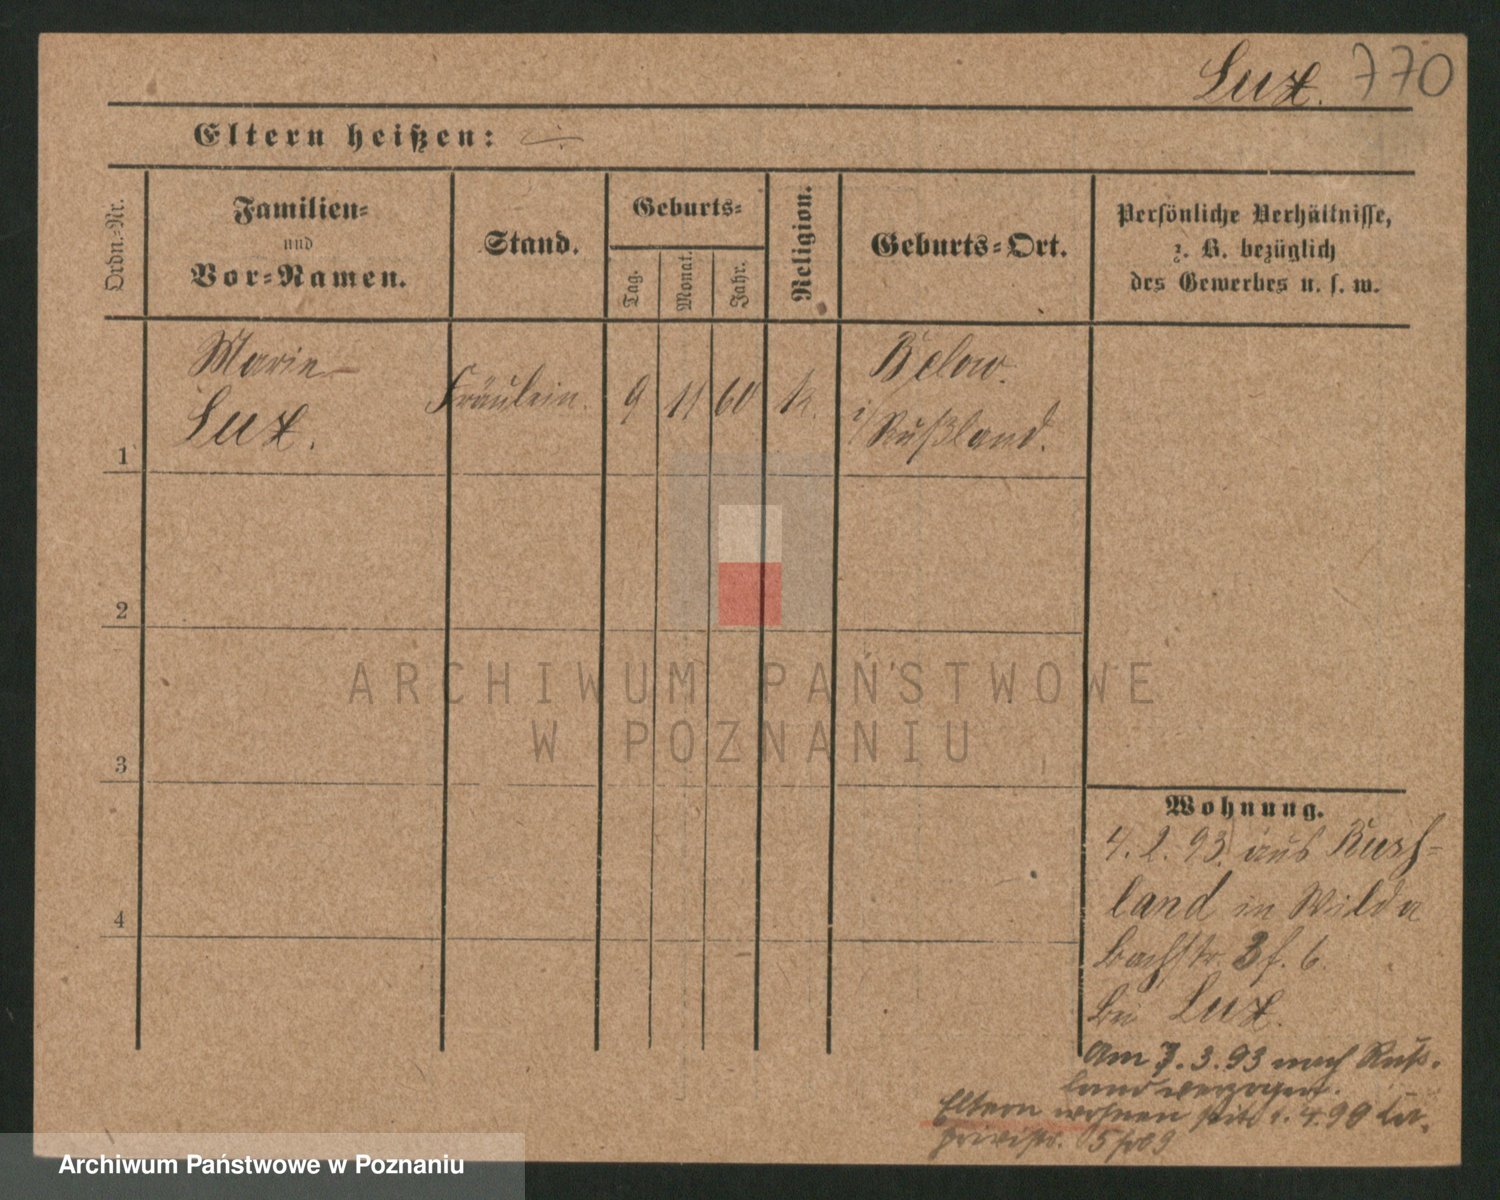 Lux. 770
Eltern heißen: -:-
Ordn.-Nr.
Familien-
und
Vor-Namen.
Stand.
Geburts-
Tag.
Monat.
Jahr.
Religion.
Geburts-Ort.
Persönliche Verhältnisse,
z. B. bezüglich
des Gewerbes u. s. w.
1
Marie
Lux.
Fräulein.
9
11
60
k.
Below.
i/ Rußland.
2
3
4
Wohnung.
4. 2. 93. aus Russ-
land in Wilda
Bachstr. 3 f. 6.
bei Lux.
Am 7. 3. 93 nach Ruß-
land verzogen.
Eltern wohnen seit 1. 4. 99
5
ARCHIWUM PAŃSTWOWE
W POZNANIU
Archiwum Państwowe w Poznaniu